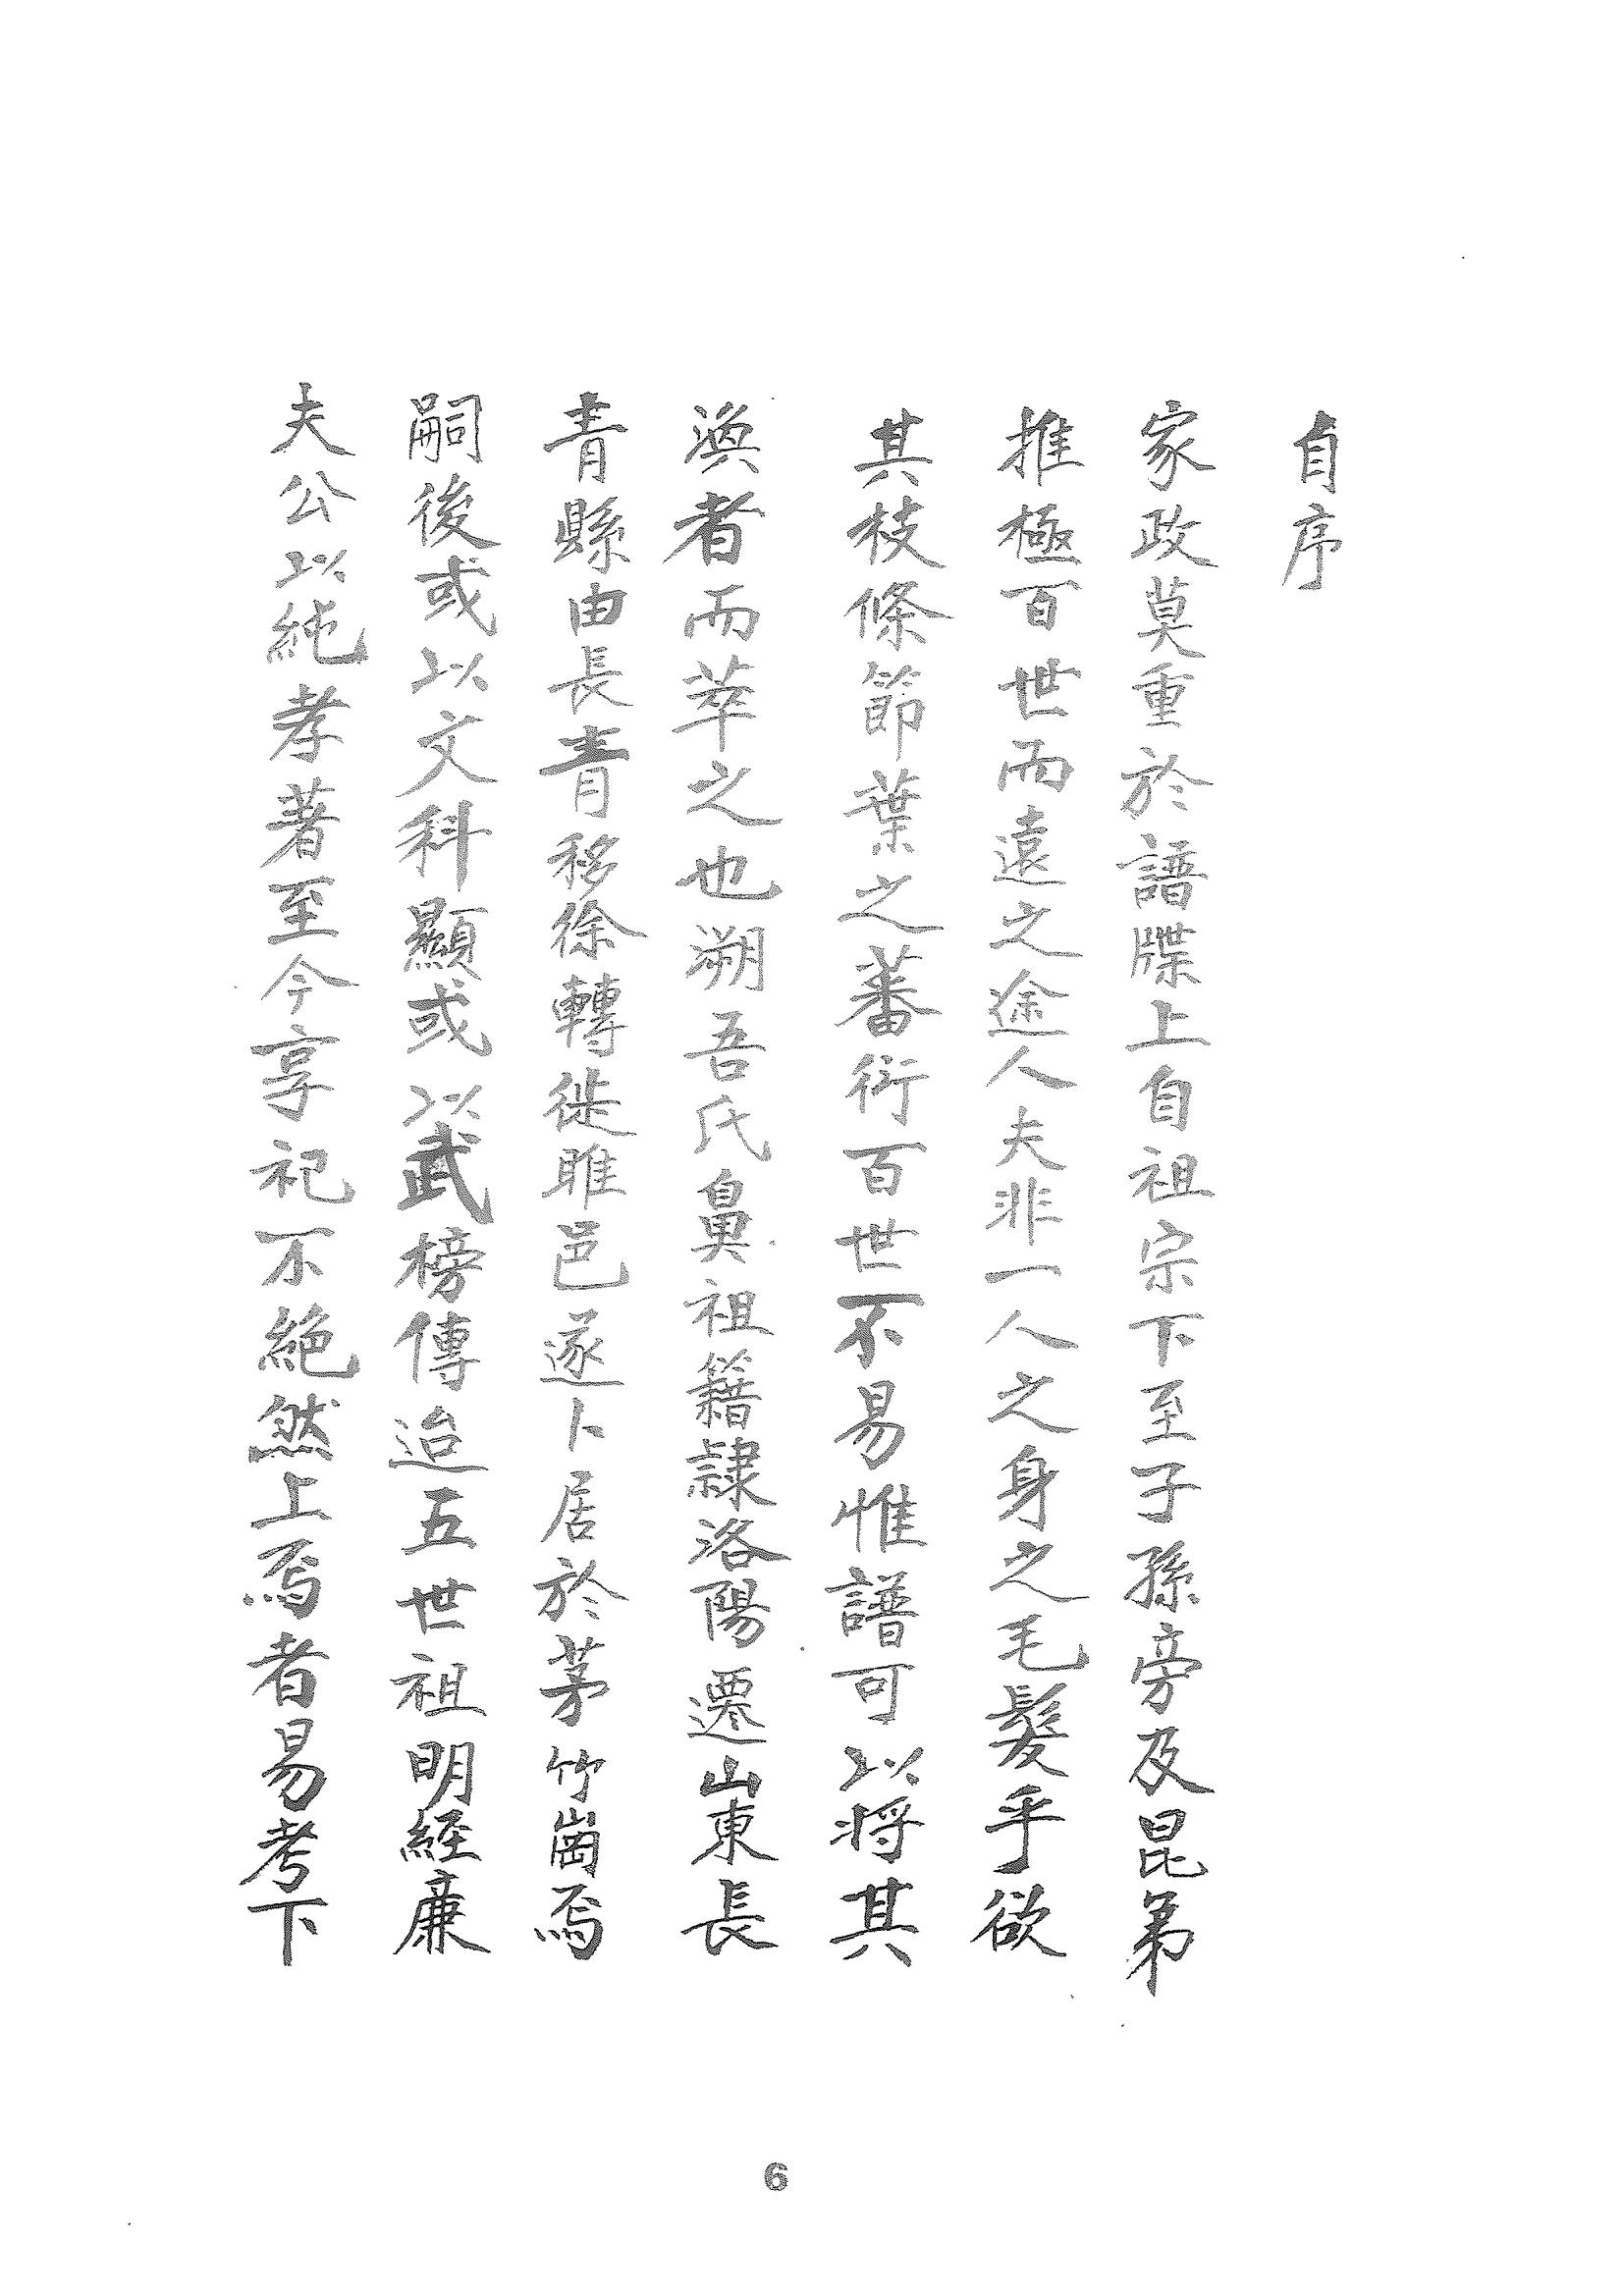 自序
家政莫重於譜牒上自祖宗下至子孫旁及昆弟
推極百世而遠之途人夫非一人之身之毛髮乎欲
其枝條節葉之蕃衍百世不易惟譜可以將其
渙者而萃之也溯吾氏鼻祖籍隷洛陽遷山東長
青縣由長青移徐轉徙睢邑遂卜居於茅竹崗焉
嗣後或以文科顯或以武榜傳迨五世祖明經廉
夫公以純孝著至今享祀不絕然上焉者易考下
6